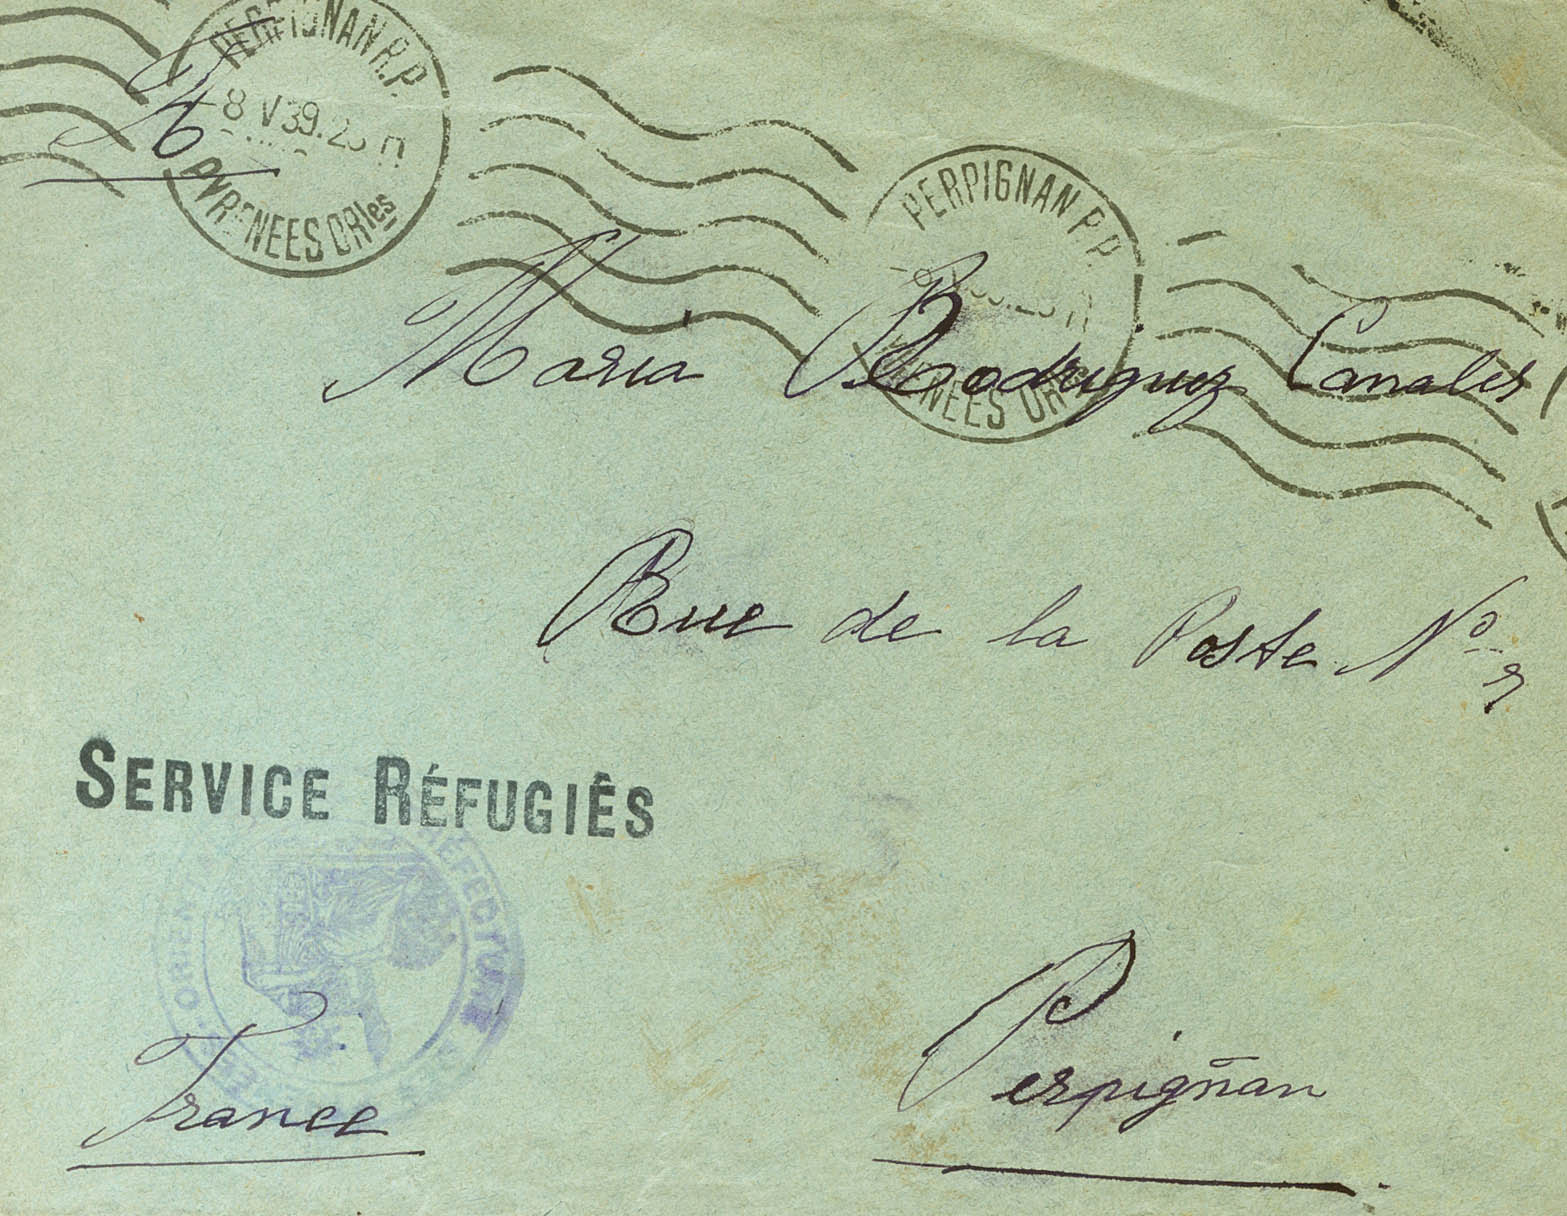 PERPIGNAN R.P.
8 V 39
PYRENEES ORles
PERPIGNAN R.P.
PYRENEES ORles
Maria Rodriguez Canales
Rue de la Poste Nº
SERVICE RÉFUGIÊS
PREFECTURE
ORIENT
France
Perpigñan